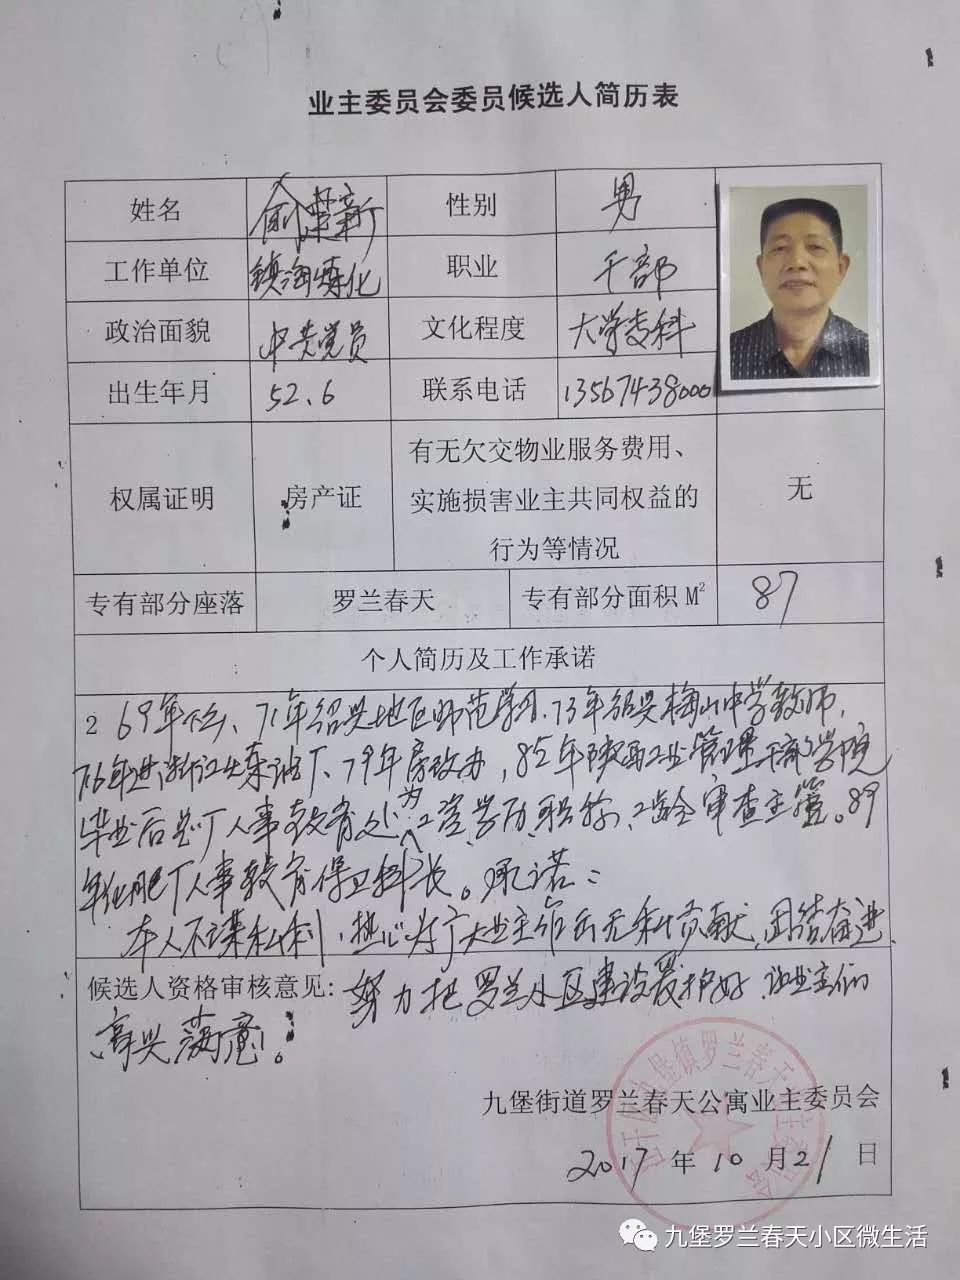 业主委员会委员候选人简历表
姓名 俞楚新 性别 男
工作单位 镇海炼化 职业 干部
政治面貌 中共党员 文化程度 大学专科
出生年月 52.6 联系电话 13567438000
权属证明 房产证 有无欠交物业服务费用、
实施损害业主共同权益的
行为等情况 无
专有部分座落 罗兰春天 专有部分面积M² 87
个人简历及工作承诺
2 69年下乡、71年绍兴地区师范学习、73年绍兴梅山中学教师，
76年进浙江炼油厂、79年房改办，85年陕西工业管理干部学院
毕业后总厂人事教育处为工资、学历、职称、工龄审查主管。89
年化肥厂人事教育保卫科长。承诺：
本人不谋私利，热心为广大业主作出无私贡献，团结奋进
候选人资格审核意见：努力把罗兰小区建设爱护好，让业主们
高兴满意。
九堡街道罗兰春天公寓业主委员会
2017年10月21日
九堡镇罗兰春天
九堡罗兰春天小区微生活